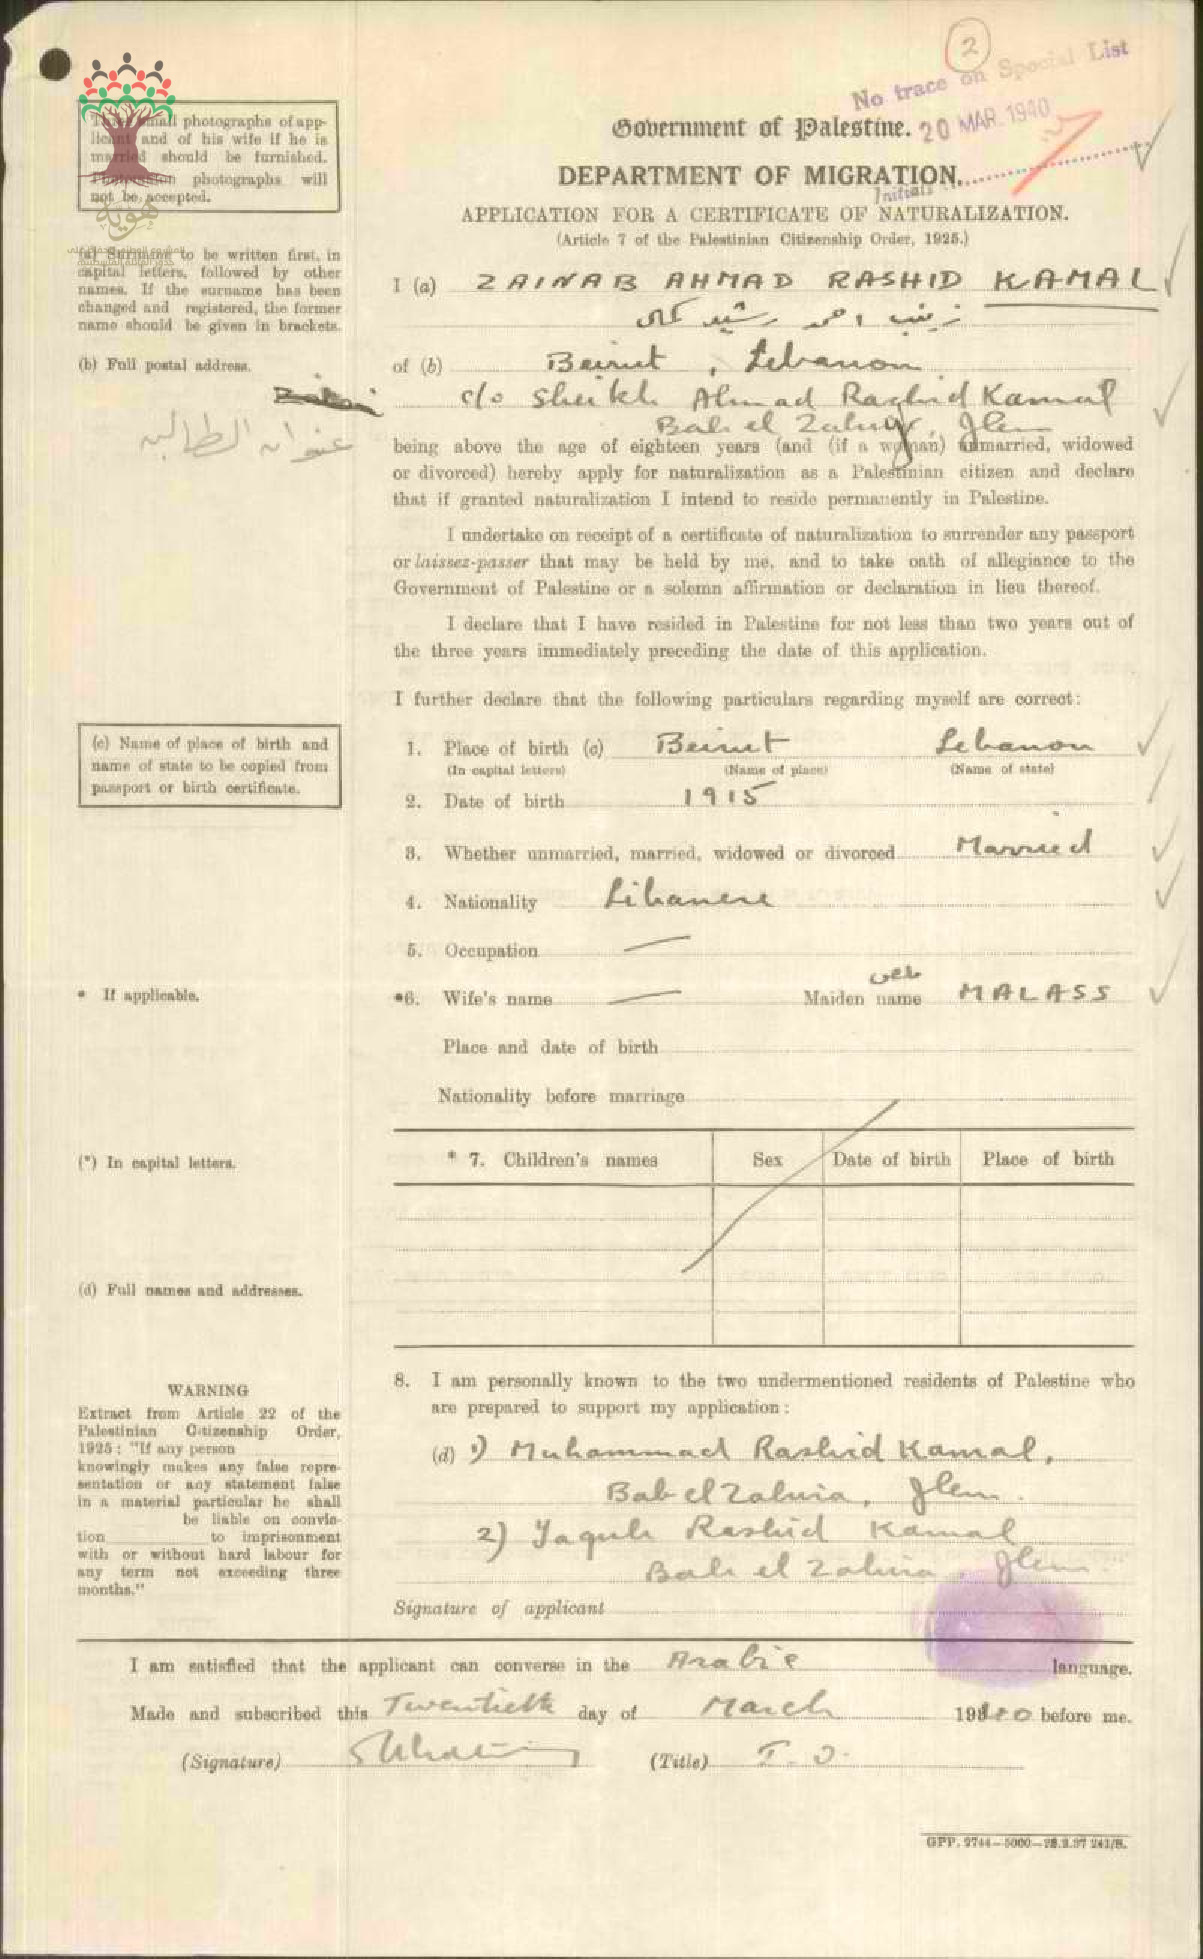 2
No trace on Special List
20 MAR. 1940
Initials
Three small photographs of app-
licant and of his wife if he is
married should be furnished.
photographs will
not be accepted.
هوية
Government of Palestine.
DEPARTMENT OF MIGRATION.
APPLICATION FOR A CERTIFICATE OF NATURALIZATION.
(Article 7 of the Palestinian Citizenship Order, 1925.)
(a) Surname to be written first, in
capital letters, followed by other
names. If the surname has been
changed and registered, the former
name should be given in brackets.
I (a) ZAINAB AHMAD RASHID KAMAL
زينب احمد رشيد كمال
(b) Full postal address.
of (b) Beirut, Lebanon
c/o Sheikh Ahmad Rashid Kamal
Bab el Zahira, Jlem
عنوان الطالبه
being above the age of eighteen years (and (if a woman) unmarried, widowed
or divorced) hereby apply for naturalization as a Palestinian citizen and declare
that if granted naturalization I intend to reside permanently in Palestine.
I undertake on receipt of a certificate of naturalization to surrender any passport
or laissez-passer that may be held by me, and to take oath of allegiance to the
Government of Palestine or a solemn affirmation or declaration in lieu thereof.
I declare that I have resided in Palestine for not less than two years out of
the three years immediately preceding the date of this application.
I further declare that the following particulars regarding myself are correct:
(c) Name of place of birth and
name of state to be copied from
passport or birth certificate.
1. Place of birth (c) Beirut Lebanon
(In capital letters) (Name of place) (Name of state)
2. Date of birth 1915
3. Whether unmarried, married, widowed or divorced Married
4. Nationality Libanese
5. Occupation —
* If applicable.
*6. Wife's name — Maiden name MALASS
ملص
Place and date of birth
Nationality before marriage
(*) In capital letters.
* 7. Children's names Sex Date of birth Place of birth
(d) Full names and addresses.
8. I am personally known to the two undermentioned residents of Palestine who
are prepared to support my application:
(d) 1) Muhammad Rashid Kamal,
Bab el Zahira, Jlem.
2) Yaqub Rashid Kamal
Bab el Zahira, Jlem.
WARNING
Extract from Article 22 of the
Palestinian Citizenship Order,
1925: "If any person
knowingly makes any false repre-
sentation or any statement false
in a material particular he shall
be liable on convic-
tion to imprisonment
with or without hard labour for
any term not exceeding three
months."
Signature of applicant
I am satisfied that the applicant can converse in the Arabic language.
Made and subscribed this Twentieth day of March 1940 before me.
(Signature) (Title) I. O.
GPP. 9744—5000—28.9.37 241/S.